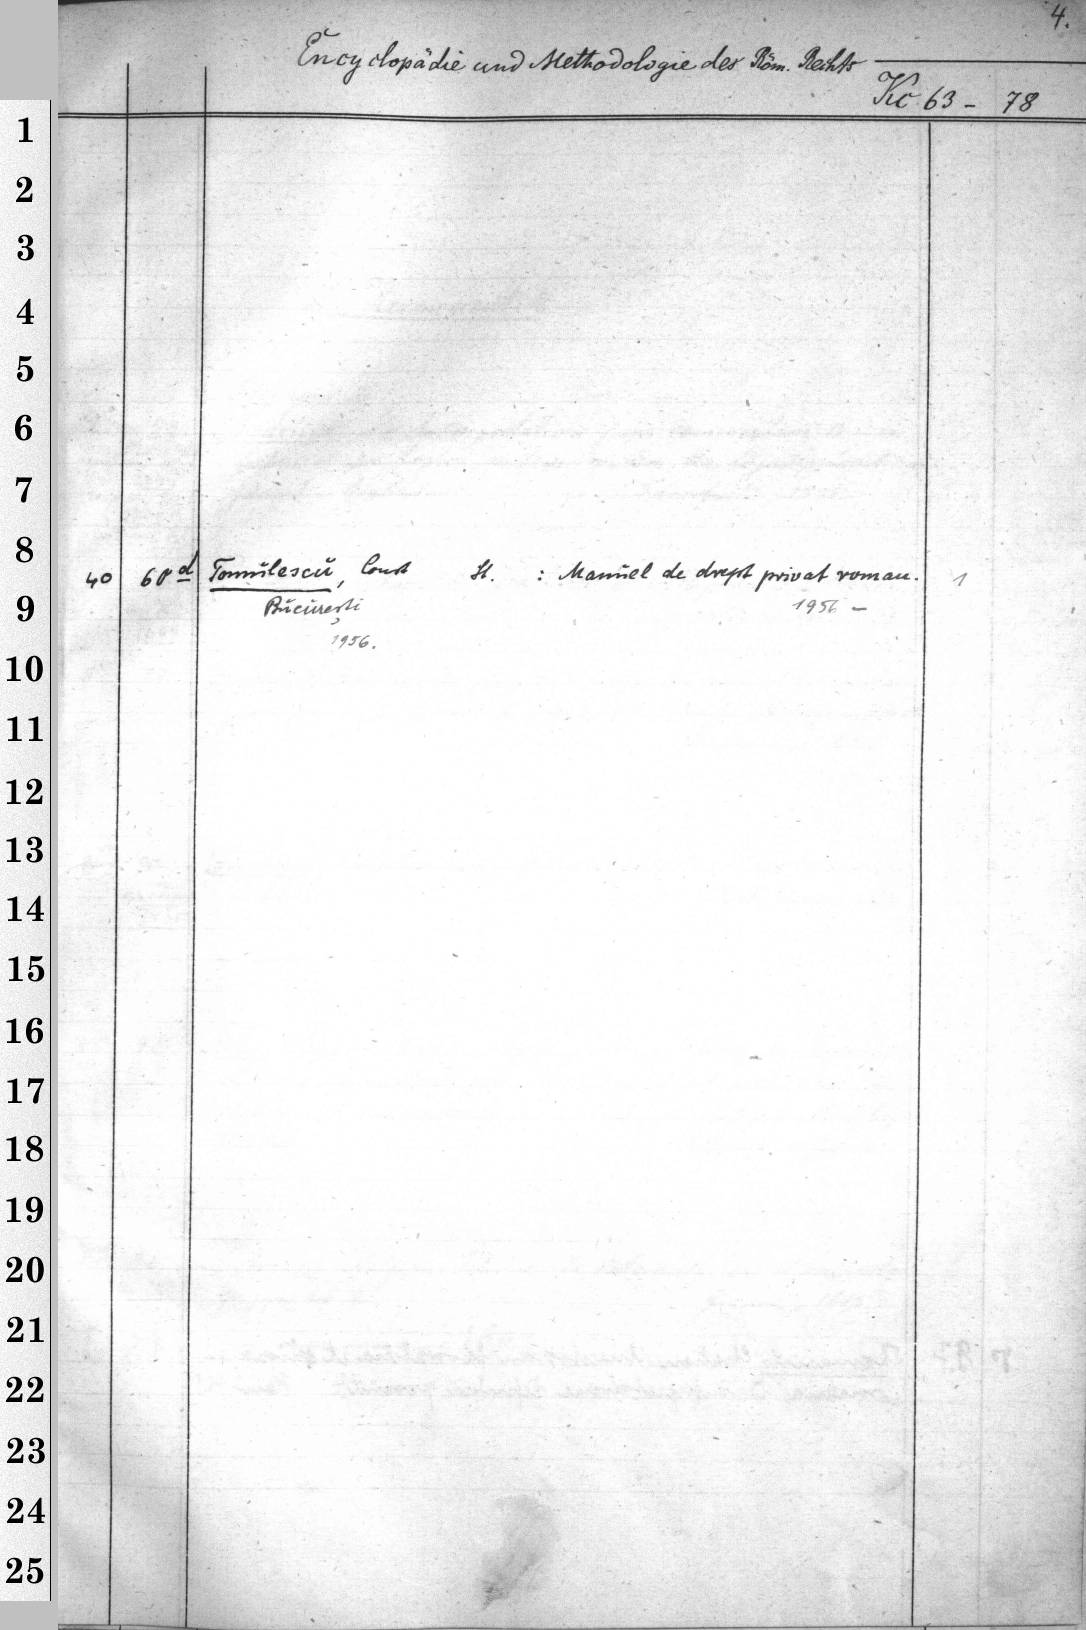 4.
Encyclopädie und Methodologie des Röm. Rechts
Kc 63 - 78
1
2
3
4
5
6
7
8
40 60 d Tomŭlescŭ, Const St. : Manŭel de drept privat roman. 1
9
Bŭcŭrești 1956 -
1956.
10
11
12
13
14
15
16
17
18
19
20
21
22
23
24
25